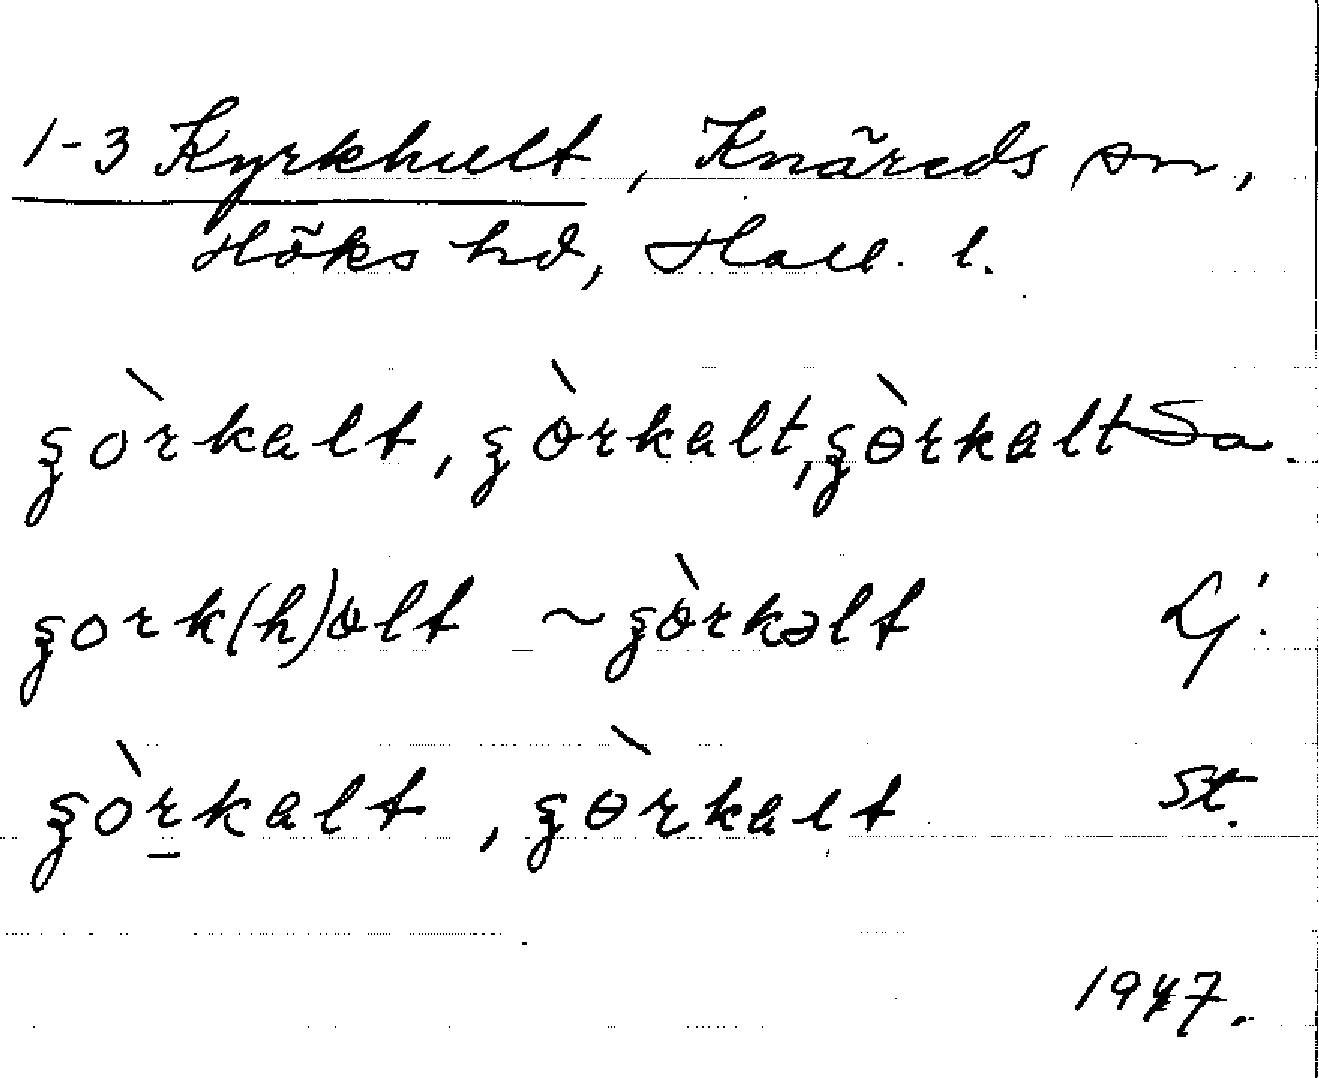 1-3 Kyrkhult, Knäreds sn,
Höks hd, Hall. l.
ʂòrkalt, ʂòrkalt, ʂɵ̀rkalt Sa.
ʂork(h)olt ~ ʂòrkəlt Lj.
ʂòrkalt, ʂɵ̀rkalt St.
1947.